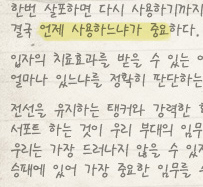 한번 살포하면 다시 사용하기까지
결국 언제 사용하느냐가 중요하다.
입자의 치료효과를 받을 수 있는
얼마나 있느냐를 정확히 판단하는
전선을 유지하는 탱커와 강력한
서포트 하는 것이 우리 부대의 임무
우리는 가장 드러나지 않을 수 있지
승패에 있어 가장 중요한 임무를